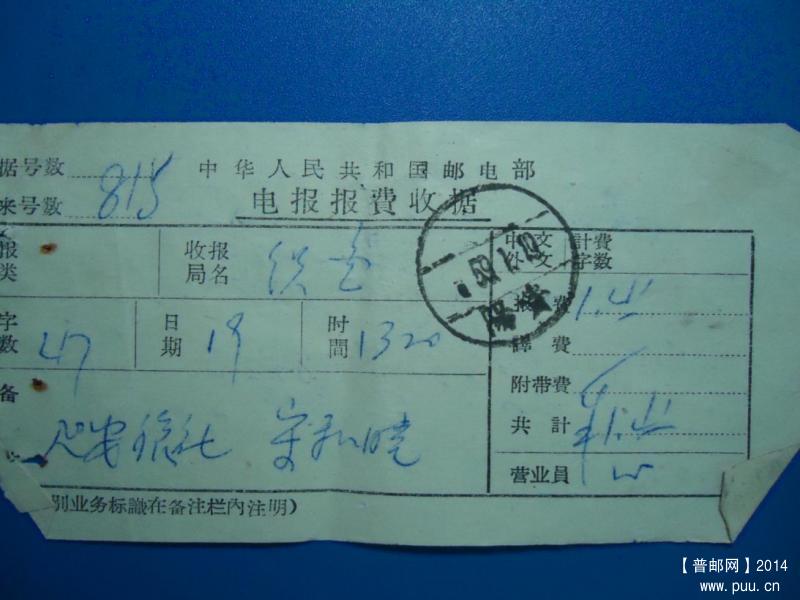 据号数 815
中华人民共和国邮电部
来号数
电报报費收据
报类
收报局名 织金
中文 計費
外文 字数
报費 1.41
字数 47
日期 19
时間 1320
譯費
附带費
备
共計 ¥1.41
营业员
别业务标識在备注栏內注明）
【普邮网】2014
www.puu.cn